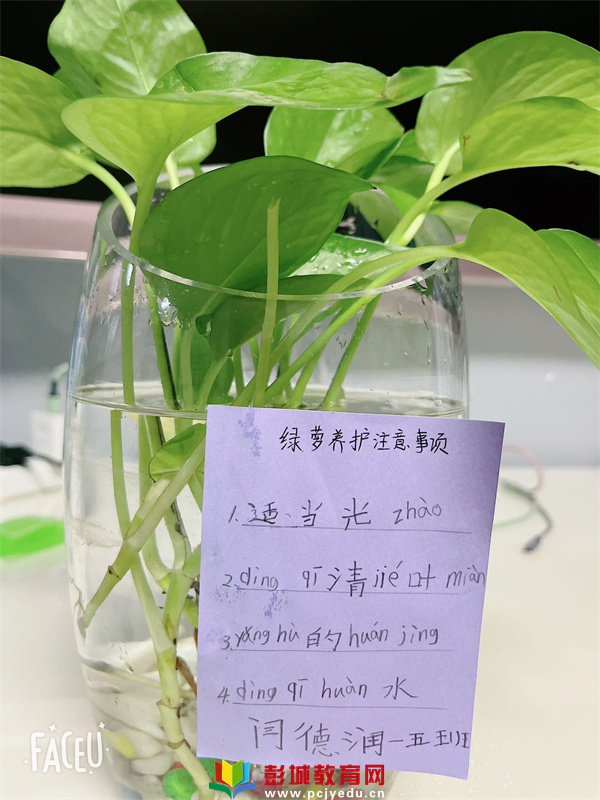 绿萝养护注意事项
1.适当光 zhào
2.dìng qī 清jié叶 miàn
3.yǎng hù 的 huán jìng
4.dìng qī huàn 水
闫德润一五班
FACEU
彭城教育网
www.pcjyedu.cn